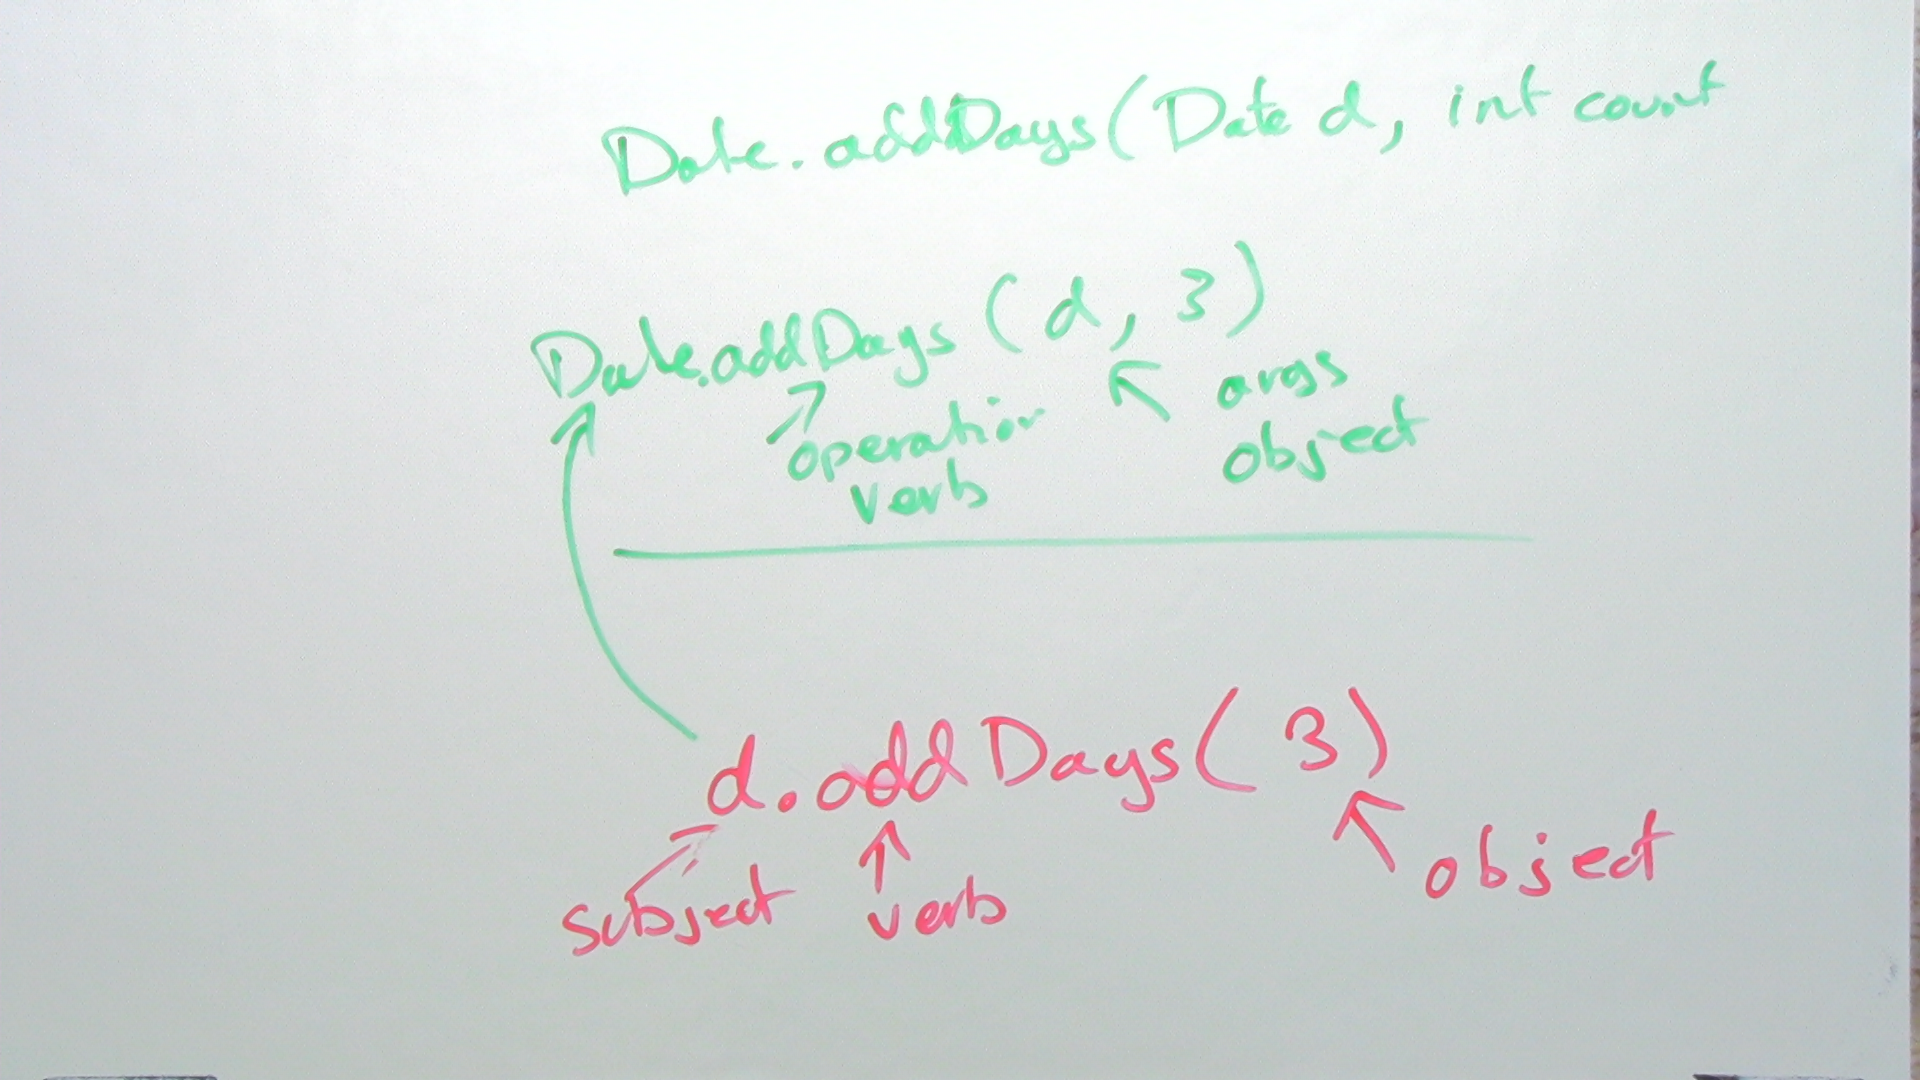 Date.addDays(Date d, int count
Date.addDays(d, 3)
operation
verb
args
object
d.addDays(3)
subject
verb
object